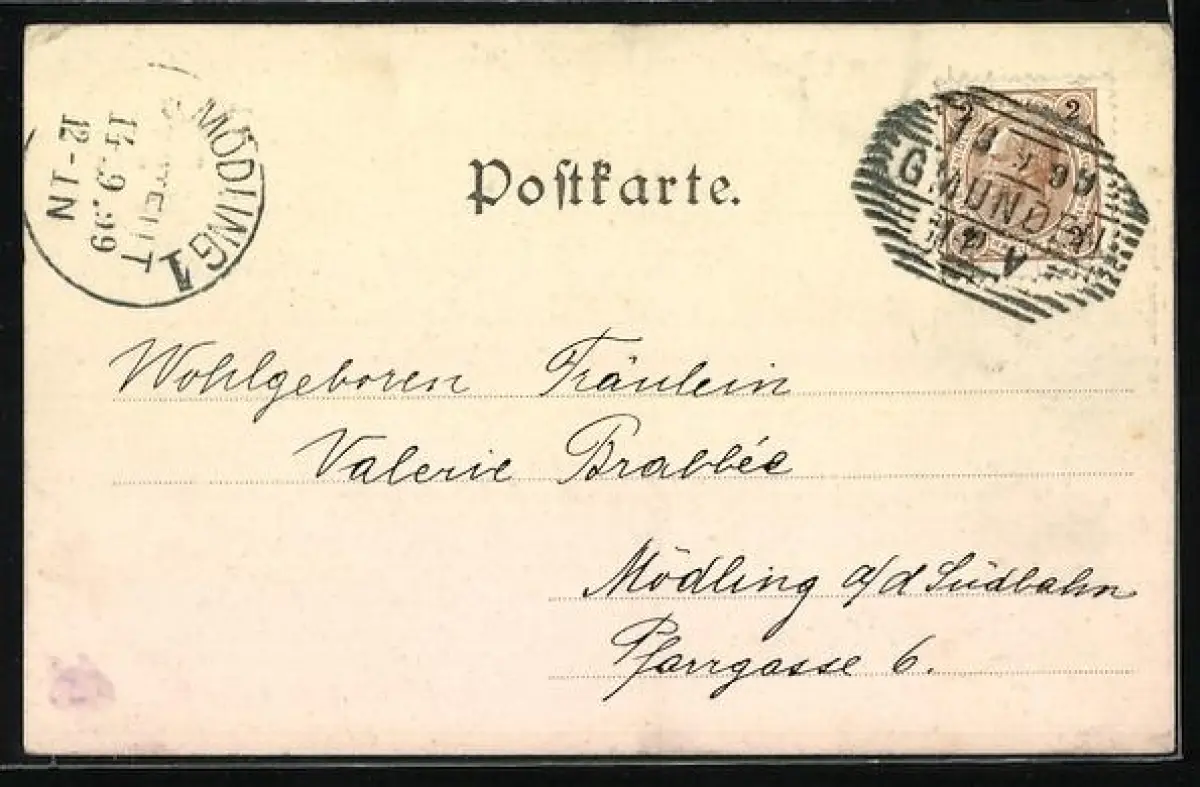 MÖDLING 1
14.9.99
12-1N
Postkarte.
2 2
99
GMUNDEN
A
Wohlgeboren Fräulein
Valerie Brabbée
Mödling a/d Südbahn
Pfarrgasse 6.